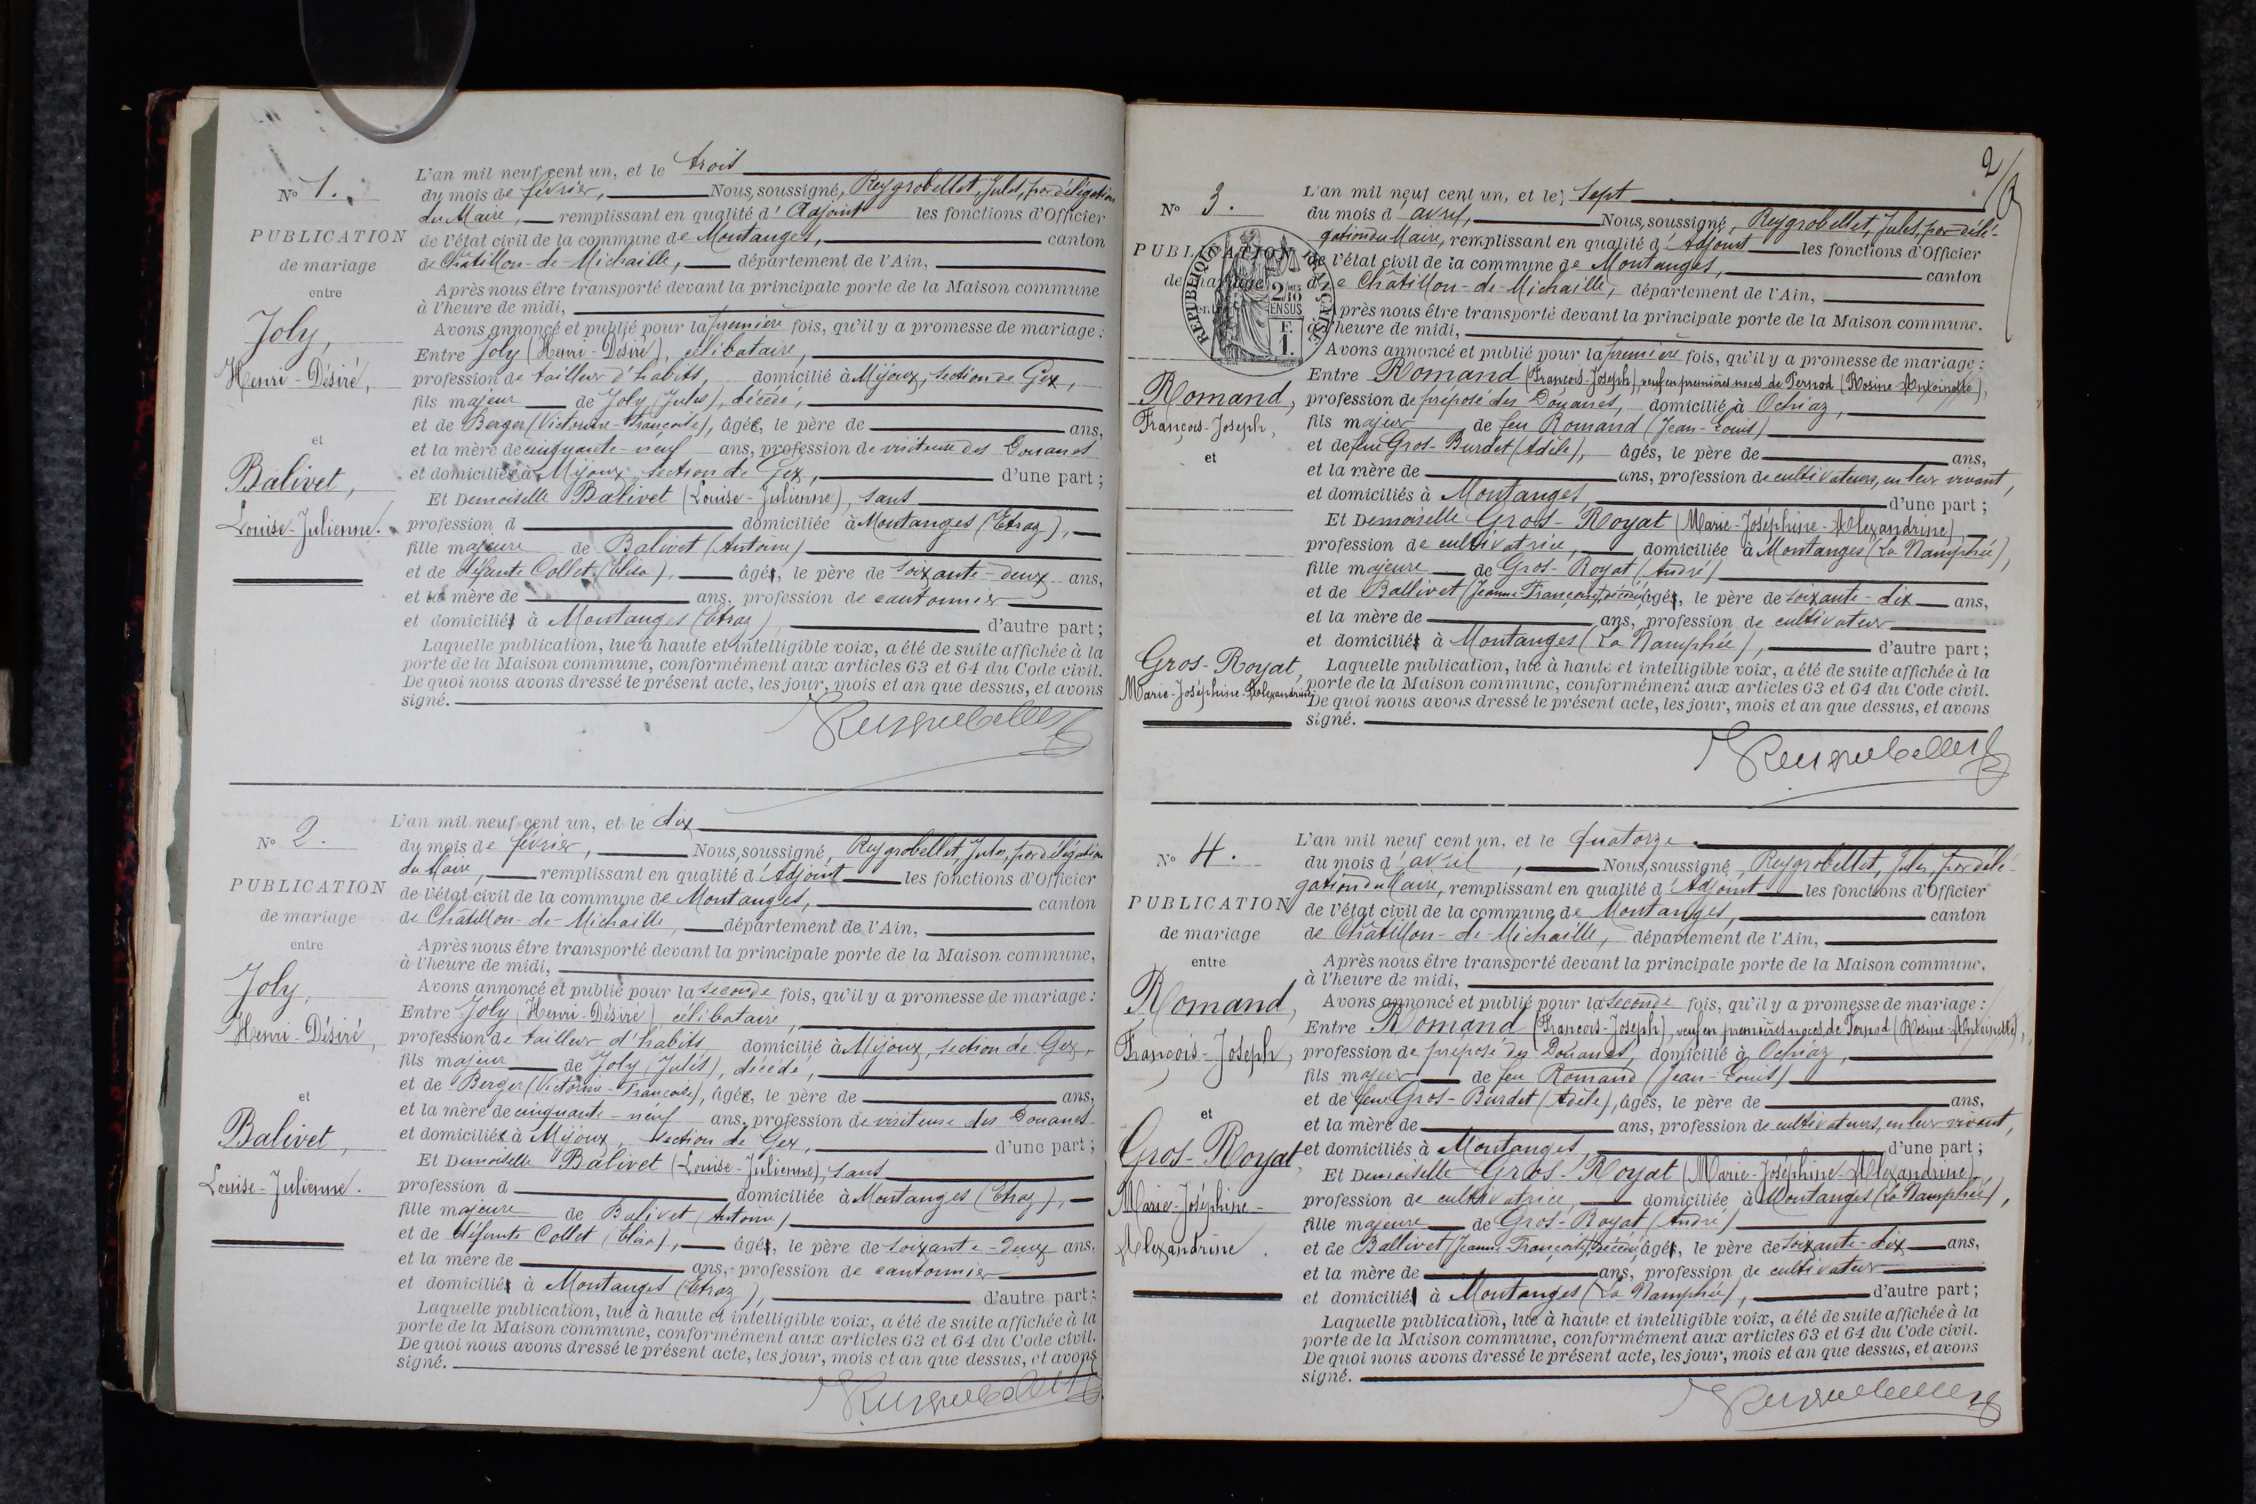 N° 1.
PUBLICATION
de mariage
entre
Joly,
Henri-Désiré,
et
Balivet,
Louise-Julienne.
L'an mil neuf cent un, et le trois
du mois de février, Nous, soussigné, Reygrobellet, Jules, par délégation
du Maire, remplissant en qualité d'Adjoint les fonctions d'Officier
de l'état civil de la commune de Montanges, canton
de Châtillon-de-Michaille, département de l'Ain,
Après nous être transporté devant la principale porte de la Maison commune
à l'heure de midi,
Avons annoncé et publié pour la première fois, qu'il y a promesse de mariage :
Entre Joly (Henri-Désiré), célibataire,
profession de tailleur d'habits, domicilié à Mijoux, section de Gex,
fils majeur de Joly (Jules), décédé,
et de Berger (Victorine-Françoise), âgée, le père de ans,
et la mère de cinquante-neuf ans, profession de visiteuse des Douanes
et domiciliée à Mijoux, section de Gex, d'une part ;
Et Demoiselle Balivet (Louise-Julienne), sans
profession d domiciliée à Montanges (Etraz),
fille majeure de Balivet (Antoine)
et de défunte Collet (Elisa), âgé, le père de soixante-deux ans,
et la mère de ans, profession de cantonnier
et domicilié à Montanges (Etraz), d'autre part ;
Laquelle publication, lue à haute et intelligible voix, a été de suite affichée à la
porte de la Maison commune, conformément aux articles 63 et 64 du Code civil.
De quoi nous avons dressé le présent acte, les jour, mois et an que dessus, et avons
signé.
Reygrobellet
N° 2.
PUBLICATION
de mariage
entre
Joly,
Henri-Désiré,
et
Balivet,
Louise-Julienne.
L'an mil neuf cent un, et le dix
du mois de février, Nous, soussigné, Reygrobellet, Jules, par délégation
du Maire, remplissant en qualité d'Adjoint les fonctions d'Officier
de l'état civil de la commune de Montanges, canton
de Châtillon-de-Michaille, département de l'Ain,
Après nous être transporté devant la principale porte de la Maison commune,
à l'heure de midi,
Avons annoncé et publié pour la seconde fois, qu'il y a promesse de mariage :
Entre Joly (Henri-Désiré), célibataire,
profession de tailleur d'habits domicilié à Mijoux, section de Gex,
fils majeur de Joly (Jules), décédé,
et de Berger (Victorine-Françoise), âgée, le père de ans,
et la mère de cinquante-neuf ans, profession de visiteuse des Douanes
et domiciliée à Mijoux, section de Gex, d'une part ;
Et Demoiselle Balivet (Louise-Julienne), sans
profession d domiciliée à Montanges (Etraz),
fille majeure de Balivet (Antoine)
et de défunte Collet (Elisa), âgé, le père de soixante-deux ans,
et la mère de ans, profession de cantonnier
et domicilié à Montanges (Etraz), d'autre part ;
Laquelle publication, lue à haute et intelligible voix, a été de suite affichée à la
porte de la Maison commune, conformément aux articles 63 et 64 du Code civil.
De quoi nous avons dressé le présent acte, les jour, mois et an que dessus, et avons
signé.
Reygrobellet
2
N° 3.
PUBLICATION
de mariage
entre
RÉPUBLIQUE FRANÇAISE
2/10
EN SUS
F.
1.
Romand,
François-Joseph,
et
Gros-Royat,
Marie-Joséphine-Alexandrine
L'an mil neuf cent un, et le sept
du mois d'avril, Nous, soussigné, Reygrobellet, Jules, par délé-
gation du Maire, remplissant en qualité d'Adjoint les fonctions d'Officier
de l'état civil de la commune de Montanges, canton
de Châtillon-de-Michaille, département de l'Ain,
Après nous être transporté devant la principale porte de la Maison commune.
à l'heure de midi,
Avons annoncé et publié pour la première fois, qu'il y a promesse de mariage :
Entre Romand (François-Joseph), veuf en premières noces de Pernod (Rosine-Antoinette),
profession de préposé des Douanes, domicilié à Ochiaz,
fils majeur de feu Romand (Jean-Louis)
et de feue Gros-Burdet (Adèle), âgés, le père de ans,
et la mère de ans, profession de cultivateurs, en leur vivant,
et domiciliés à Montanges d'une part ;
Et Demoiselle Gros-Royat (Marie-Joséphine-Alexandrine),
profession de cultivatrice, domiciliée à Montanges (La Namphée),
fille majeure de Gros-Royat (André)
et de Ballivet (Jeanne-Françoise), décédée, âgé, le père de soixante-dix ans,
et la mère de ans, profession de cultivateur
et domicilié à Montanges (La Namphée), d'autre part ;
Laquelle publication, lue à haute et intelligible voix, a été de suite affichée à la
porte de la Maison commune, conformément aux articles 63 et 64 du Code civil.
De quoi nous avons dressé le présent acte, les jour, mois et an que dessus, et avons
signé.
Reygrobellet
N° 4.
PUBLICATION
de mariage
entre
Romand,
François-Joseph,
et
Gros-Royat,
Marie-Joséphine-
Alexandrine.
L'an mil neuf cent un, et le quatorze
du mois d'avril, Nous, soussigné, Reygrobellet, Jules, par délé-
gation du Maire, remplissant en qualité d'Adjoint les fonctions d'Officier
de l'état civil de la commune de Montanges, canton
de Châtillon-de-Michaille, département de l'Ain,
Après nous être transporté devant la principale porte de la Maison commune.
à l'heure de midi,
Avons annoncé et publié pour la seconde fois, qu'il y a promesse de mariage :
Entre Romand (François-Joseph), veuf en premières noces de Pernod (Rosine-Antoinette),
profession de préposé des Douanes, domicilié à Ochiaz,
fils majeur de feu Romand (Jean-Louis)
et de feue Gros-Burdet (Adèle), âgés, le père de ans,
et la mère de ans, profession de cultivateurs, en leur vivant,
et domiciliés à Montanges, d'une part ;
Et Demoiselle Gros-Royat (Marie-Joséphine-Alexandrine)
profession de cultivatrice, domiciliée à Montanges (La Namphée),
fille majeure de Gros-Royat (André)
et de Ballivet (Jeanne-Françoise), décédée, âgé, le père de soixante-dix ans,
et la mère de ans, profession de cultivateur
et domicilié à Montanges (La Namphée), d'autre part ;
Laquelle publication, lue à haute et intelligible voix, a été de suite affichée à la
porte de la Maison commune, conformément aux articles 63 et 64 du Code civil.
De quoi nous avons dressé le présent acte, les jour, mois et an que dessus, et avons
signé.
Reygrobellet